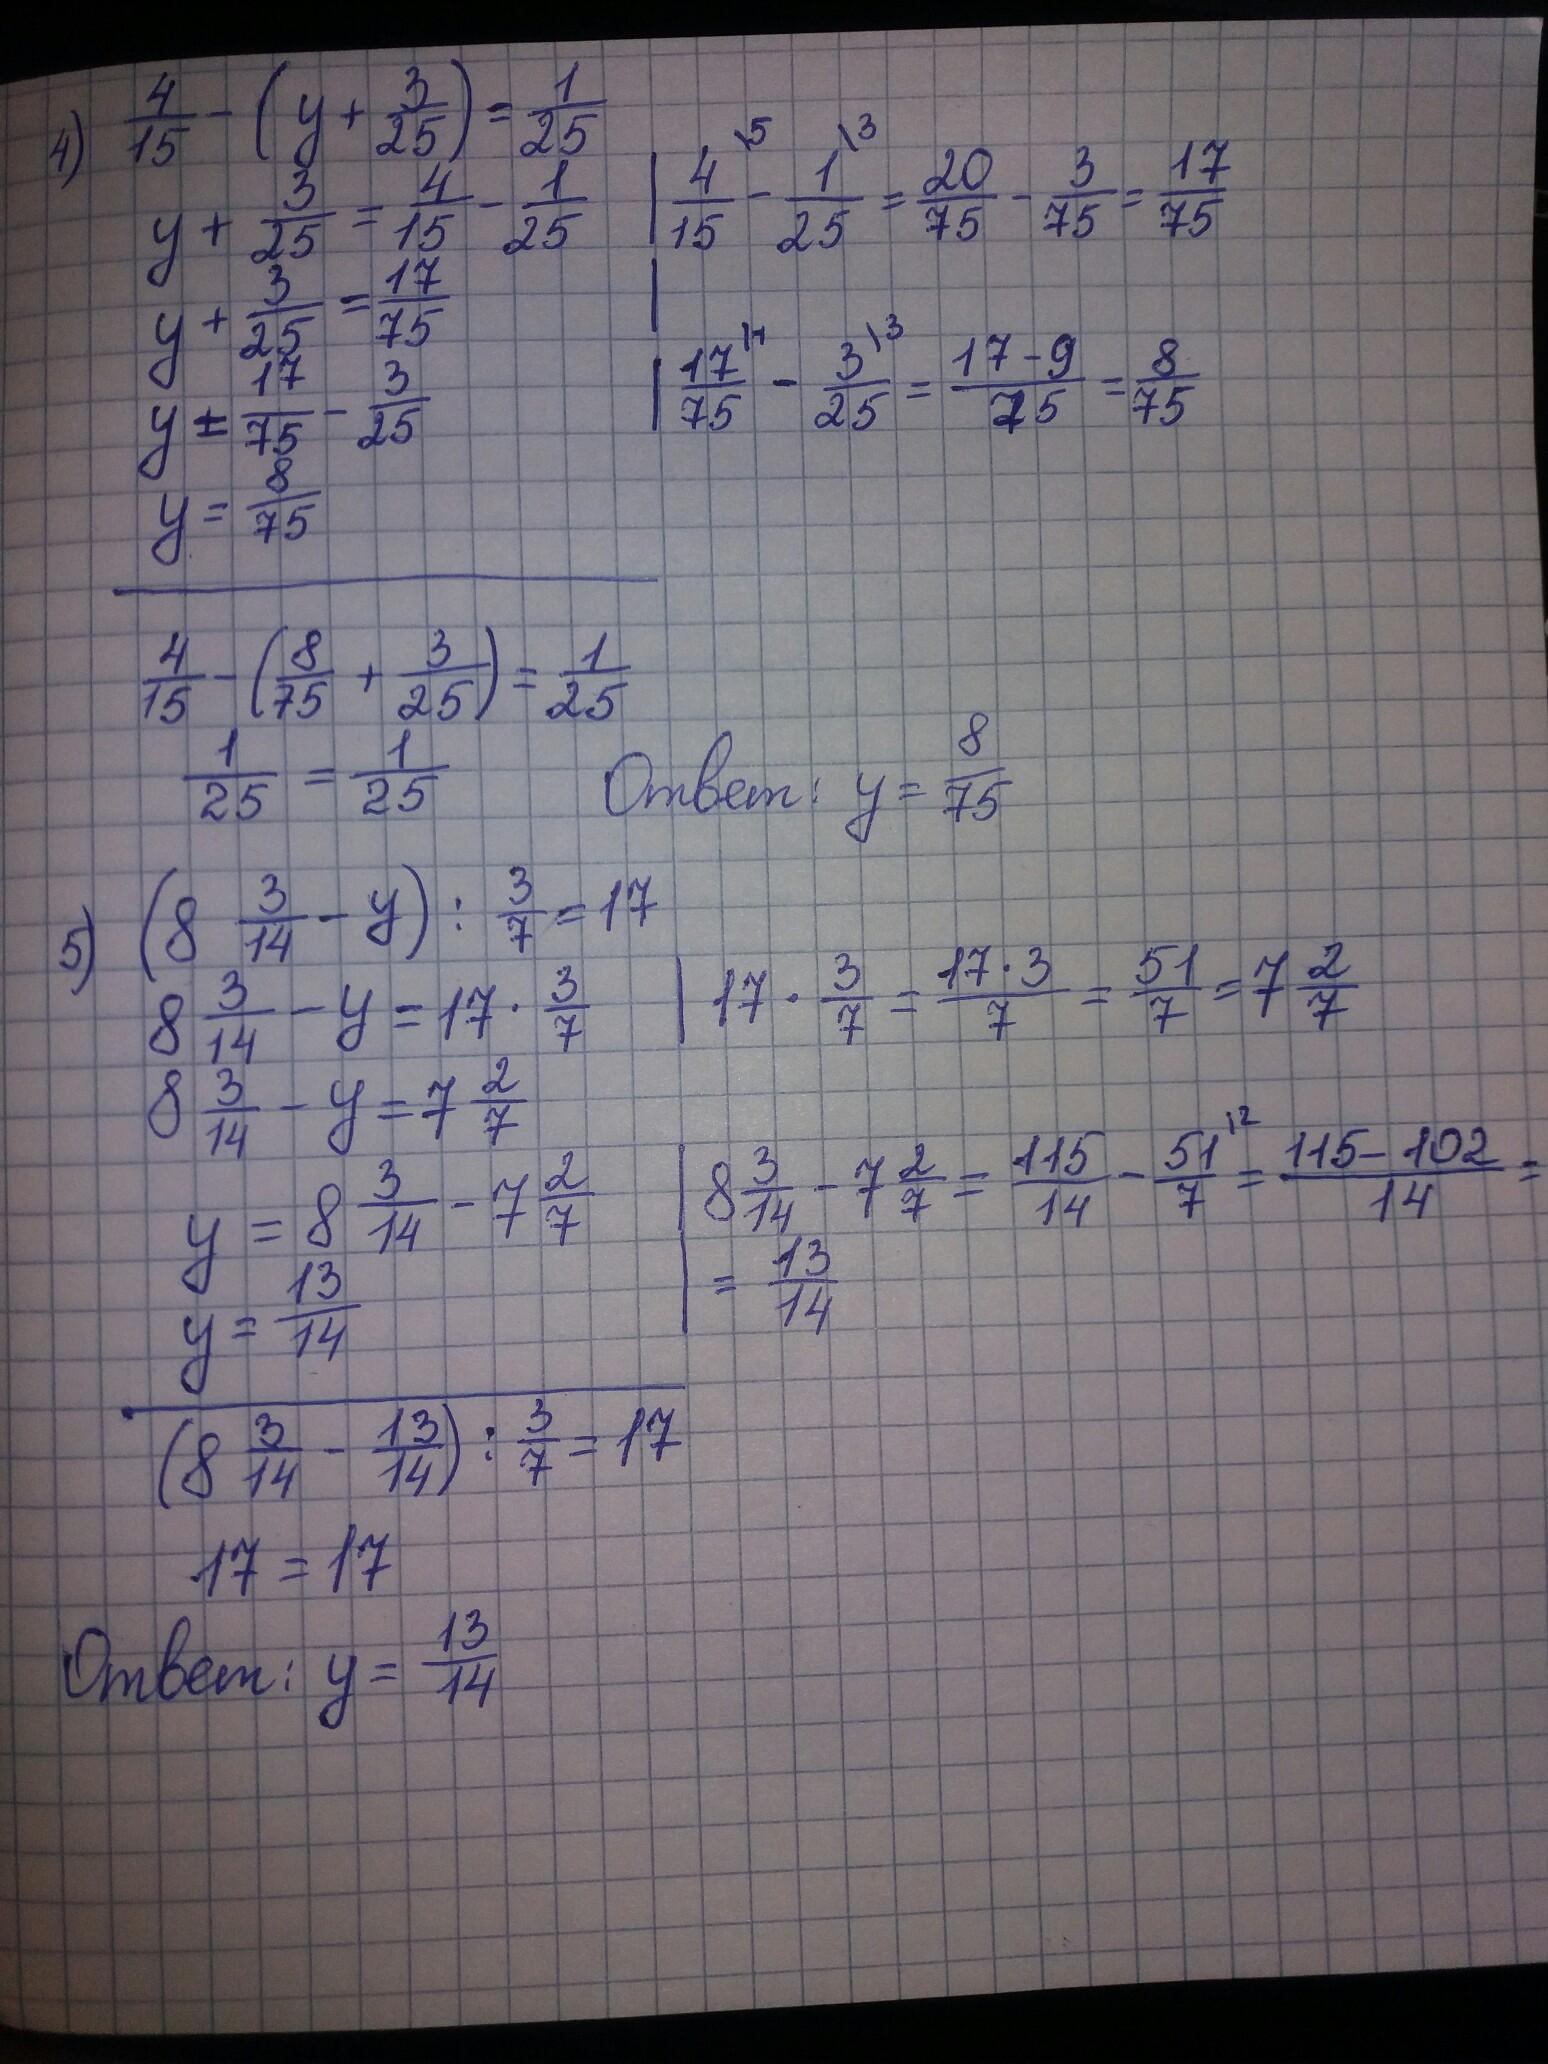 4) 4/15 - (y + 3/25) = 1/25
y + 3/25 = 4/15 - 1/25 | 4/15 \5 - 1/25 \3 = 20/75 - 3/75 = 17/75
y + 3/25 = 17/75 |
y = 17/75 - 3/25 | 17/75 \1 - 3/25 \3 = (17-9)/75 = 8/75
y = 8/75
4/15 - (8/75 + 3/25) = 1/25
1/25 = 1/25 Ответ: y = 8/75
5) (8 3/14 - y) : 3/7 = 17
8 3/14 - y = 17 · 3/7 | 17 · 3/7 = (17·3)/7 = 51/7 = 7 2/7
8 3/14 - y = 7 2/7
y = 8 3/14 - 7 2/7 | 8 3/14 - 7 2/7 = 115/14 - 51/7 \2 = (115-102)/14 =
y = 13/14 | = 13/14
(8 3/14 - 13/14) : 3/7 = 17
17 = 17
Ответ: y = 13/14